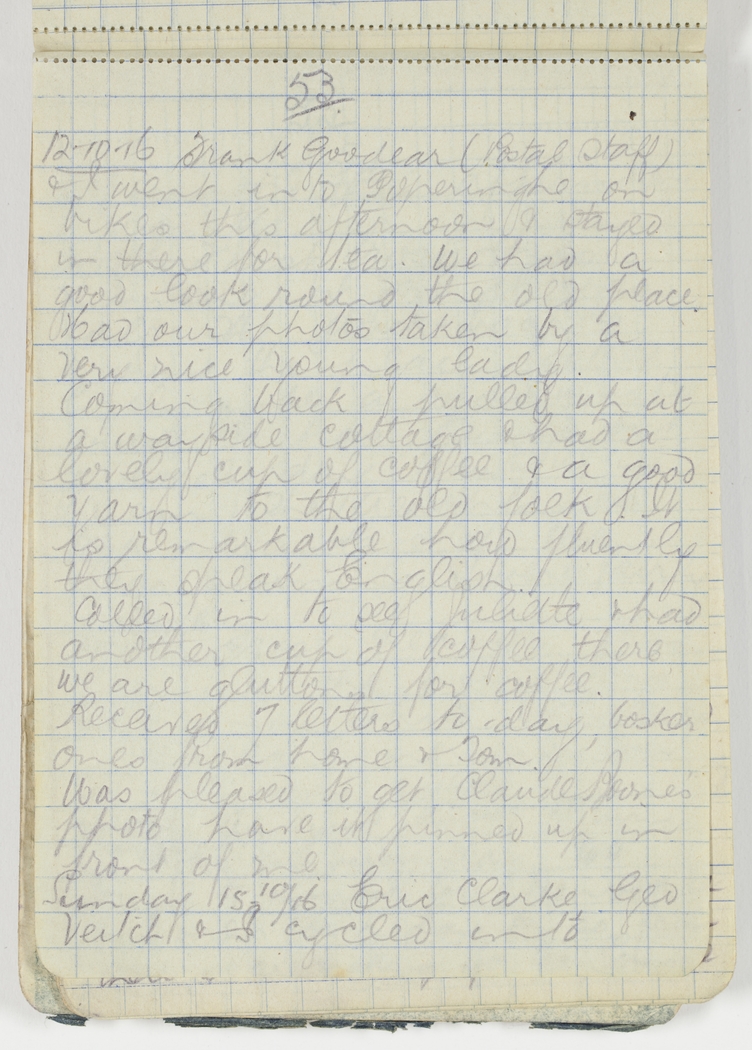 53
12-10-16 Frank Goodear (Postal Staff)
& I went into Poperinghe on
bikes this afternoon & stayed
in there for tea. We had a
good look round the old place.
Had our photos taken by a
very nice young lady.
Coming back I pulled up at
a wayside cottage & had a
lovely cup of coffee & a good
yarn to the old folk. It
is remarkable how fluently
they speak English.
Called in to see & had
another cup of coffee there
we are gluttons for coffee.
Received 7 letters to-day, bosker
ones from home & Tom.
Was pleased to get Claude
photo have it pinned up in
front of me
Sunday 15/10/16 Eric Clarke Geo
Veitch & I cycled into